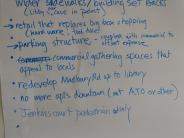 wider sidewalks/building set backs
(utility issue in point)
→ retail that replaces big box shopping
(hardware, food store)
→ parking structure - coupled with commercial to
offset expense
• commercial/gathering spaces that
appeal to locals
• redevelop Madbury Rd up to library
• no more apts downtown (not ATO or other)
• Jenkins court pedestrian only
•